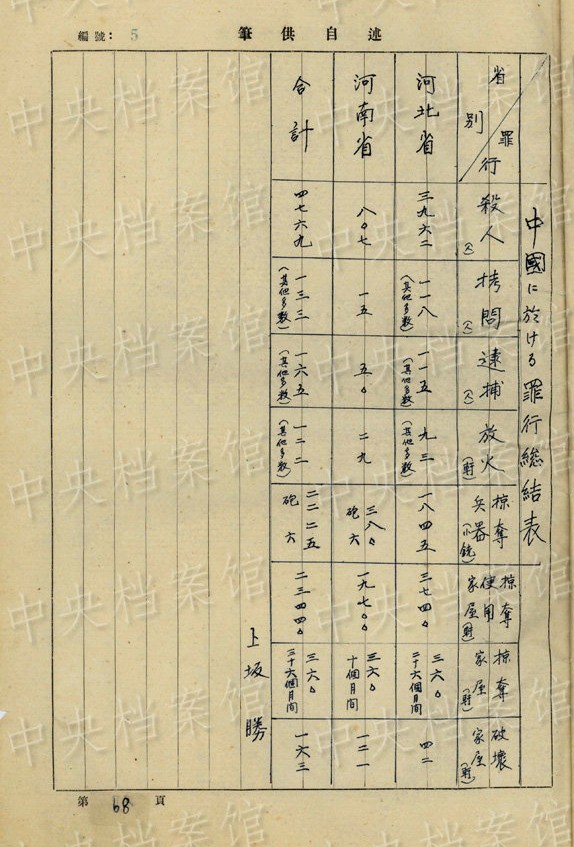 編號：5
述自供筆
中國に於ける罪行総結表
省別 罪行
殺人(人)
拷問(人)
逮捕(人)
放火(軒)
掠奪兵器(小銃)
掠奪使用家屋(軒)
掠奪家屋(軒)
破壊家屋(軒)
河北省
三九六二
一一八(其他多数)
一一五(其他多数)
九三(其他多数)
一八四五
三七四〇
三六〇 二十六個月间
四二
河南省
八〇七
一五
五〇
二九
三八〇 砲六
一九七〇〇
三六〇 十個月间
一二一
合計
四七六九
一三三(其他多数)
一六五(其他多数)
一二二(其他多数)
二二二五 砲六
二三四四〇
三六〇 三十六個月间
一六三
上坂勝
第 68 頁
中央档案馆